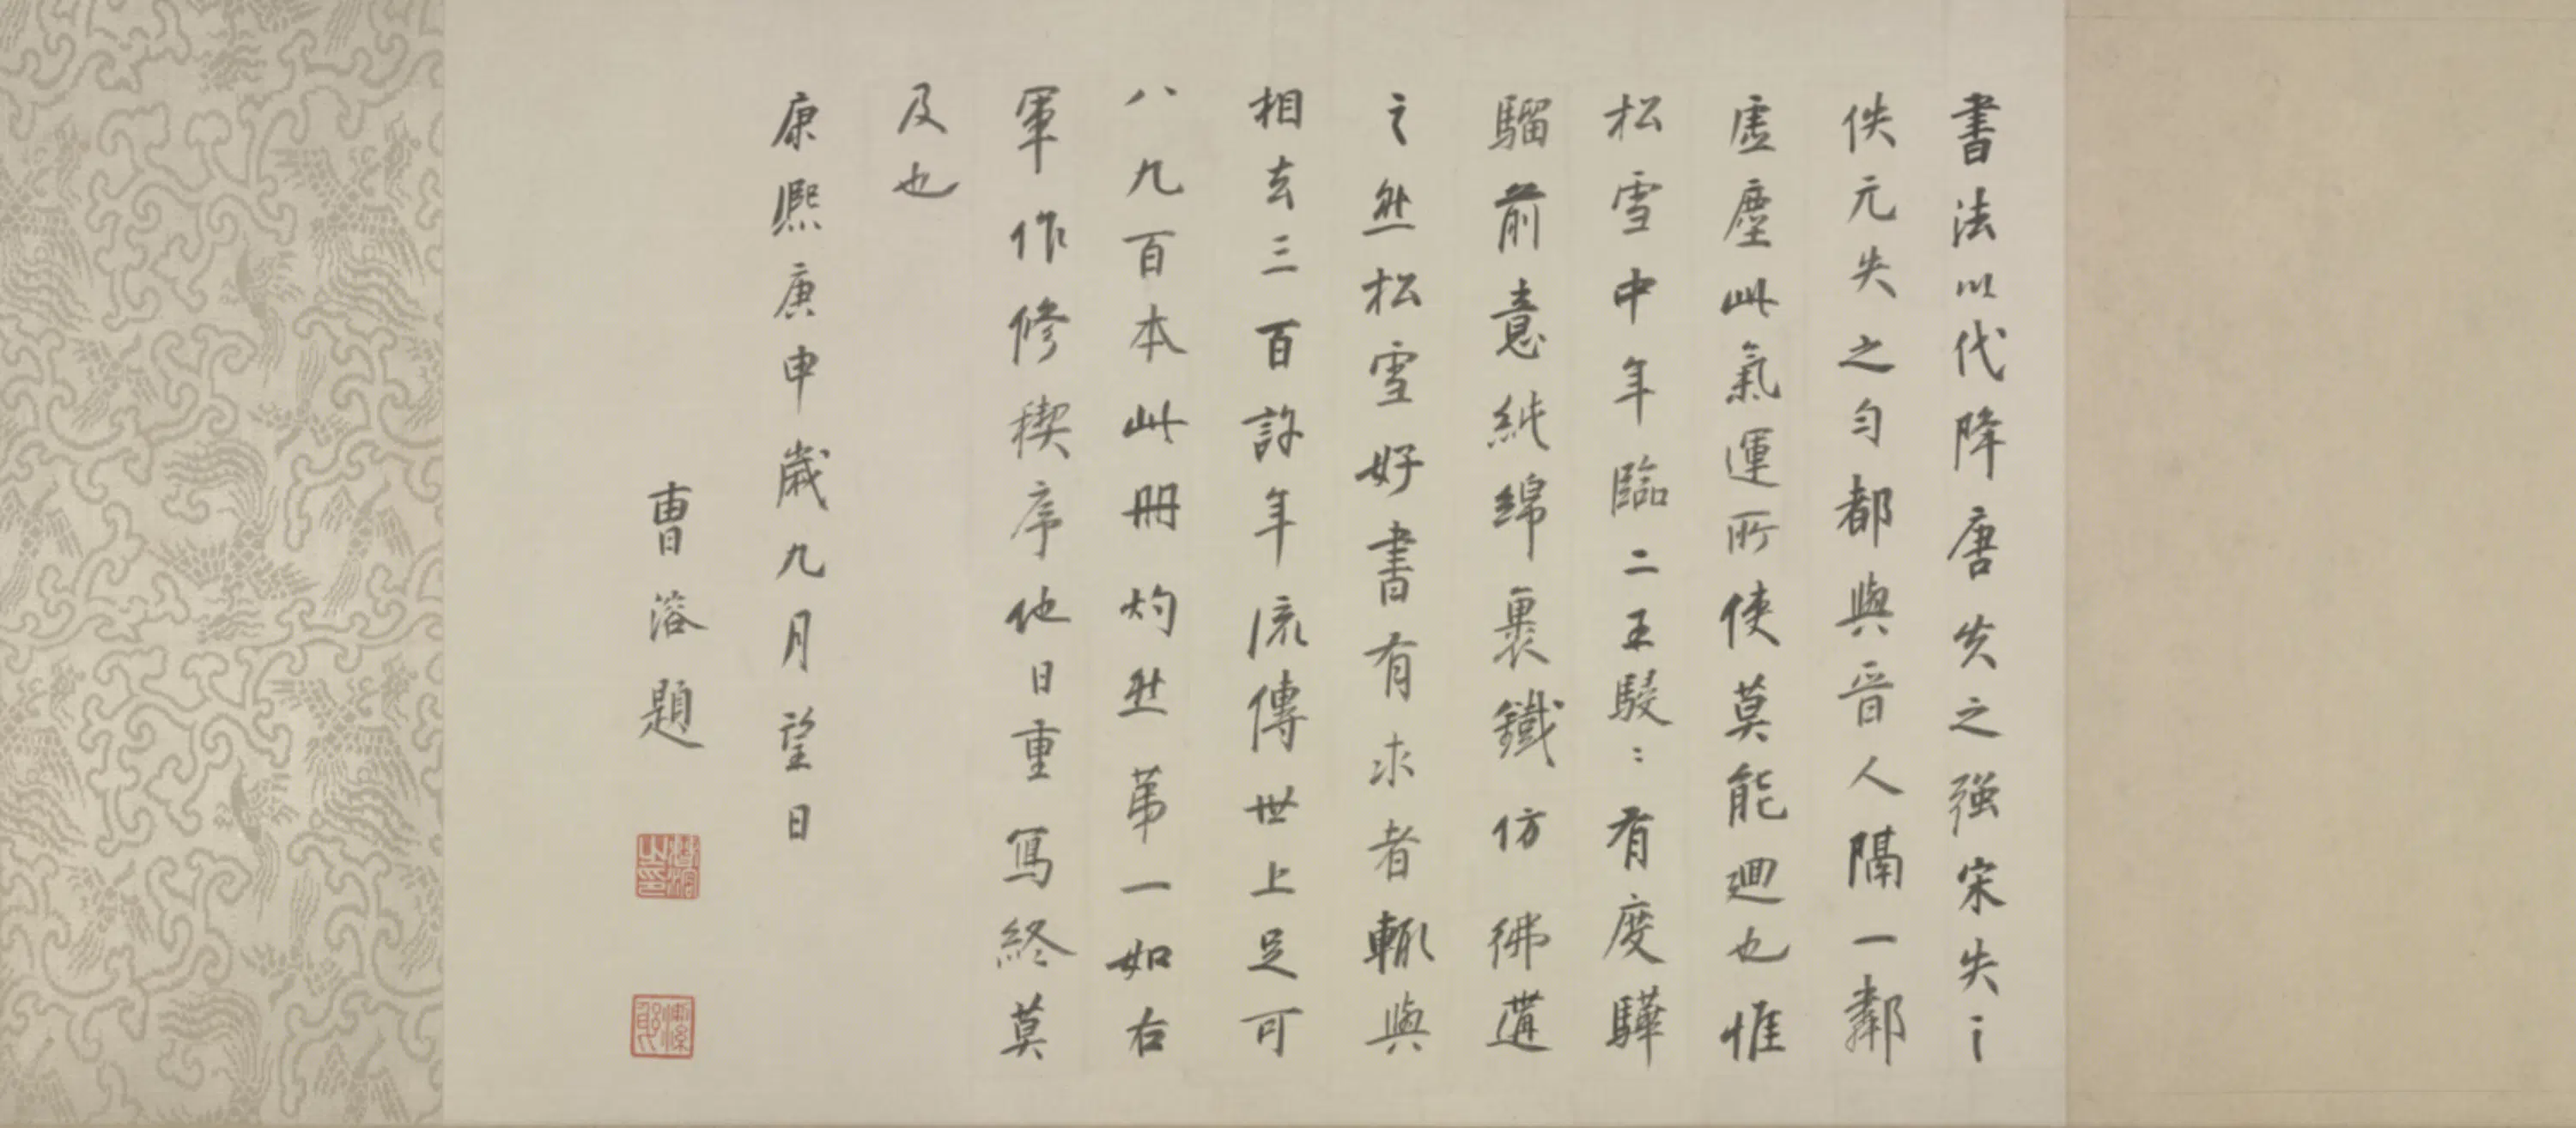 書法以代降唐失之强宋失之
佚元失之勻都與晉人隔一鄰
虛塵此氣運所使莫能迴也惟
松雪中年臨二王駸〻有度驊
騮前意純綿裹鐵仿彿遘
之然松雪好書有求者輒與
相去三百許年流傳世上足可
八九百本此冊灼然第一如右
軍作修禊序他日重寫終莫
及也
康熙庚申歲九月望日
曹溶題
曹溶之印